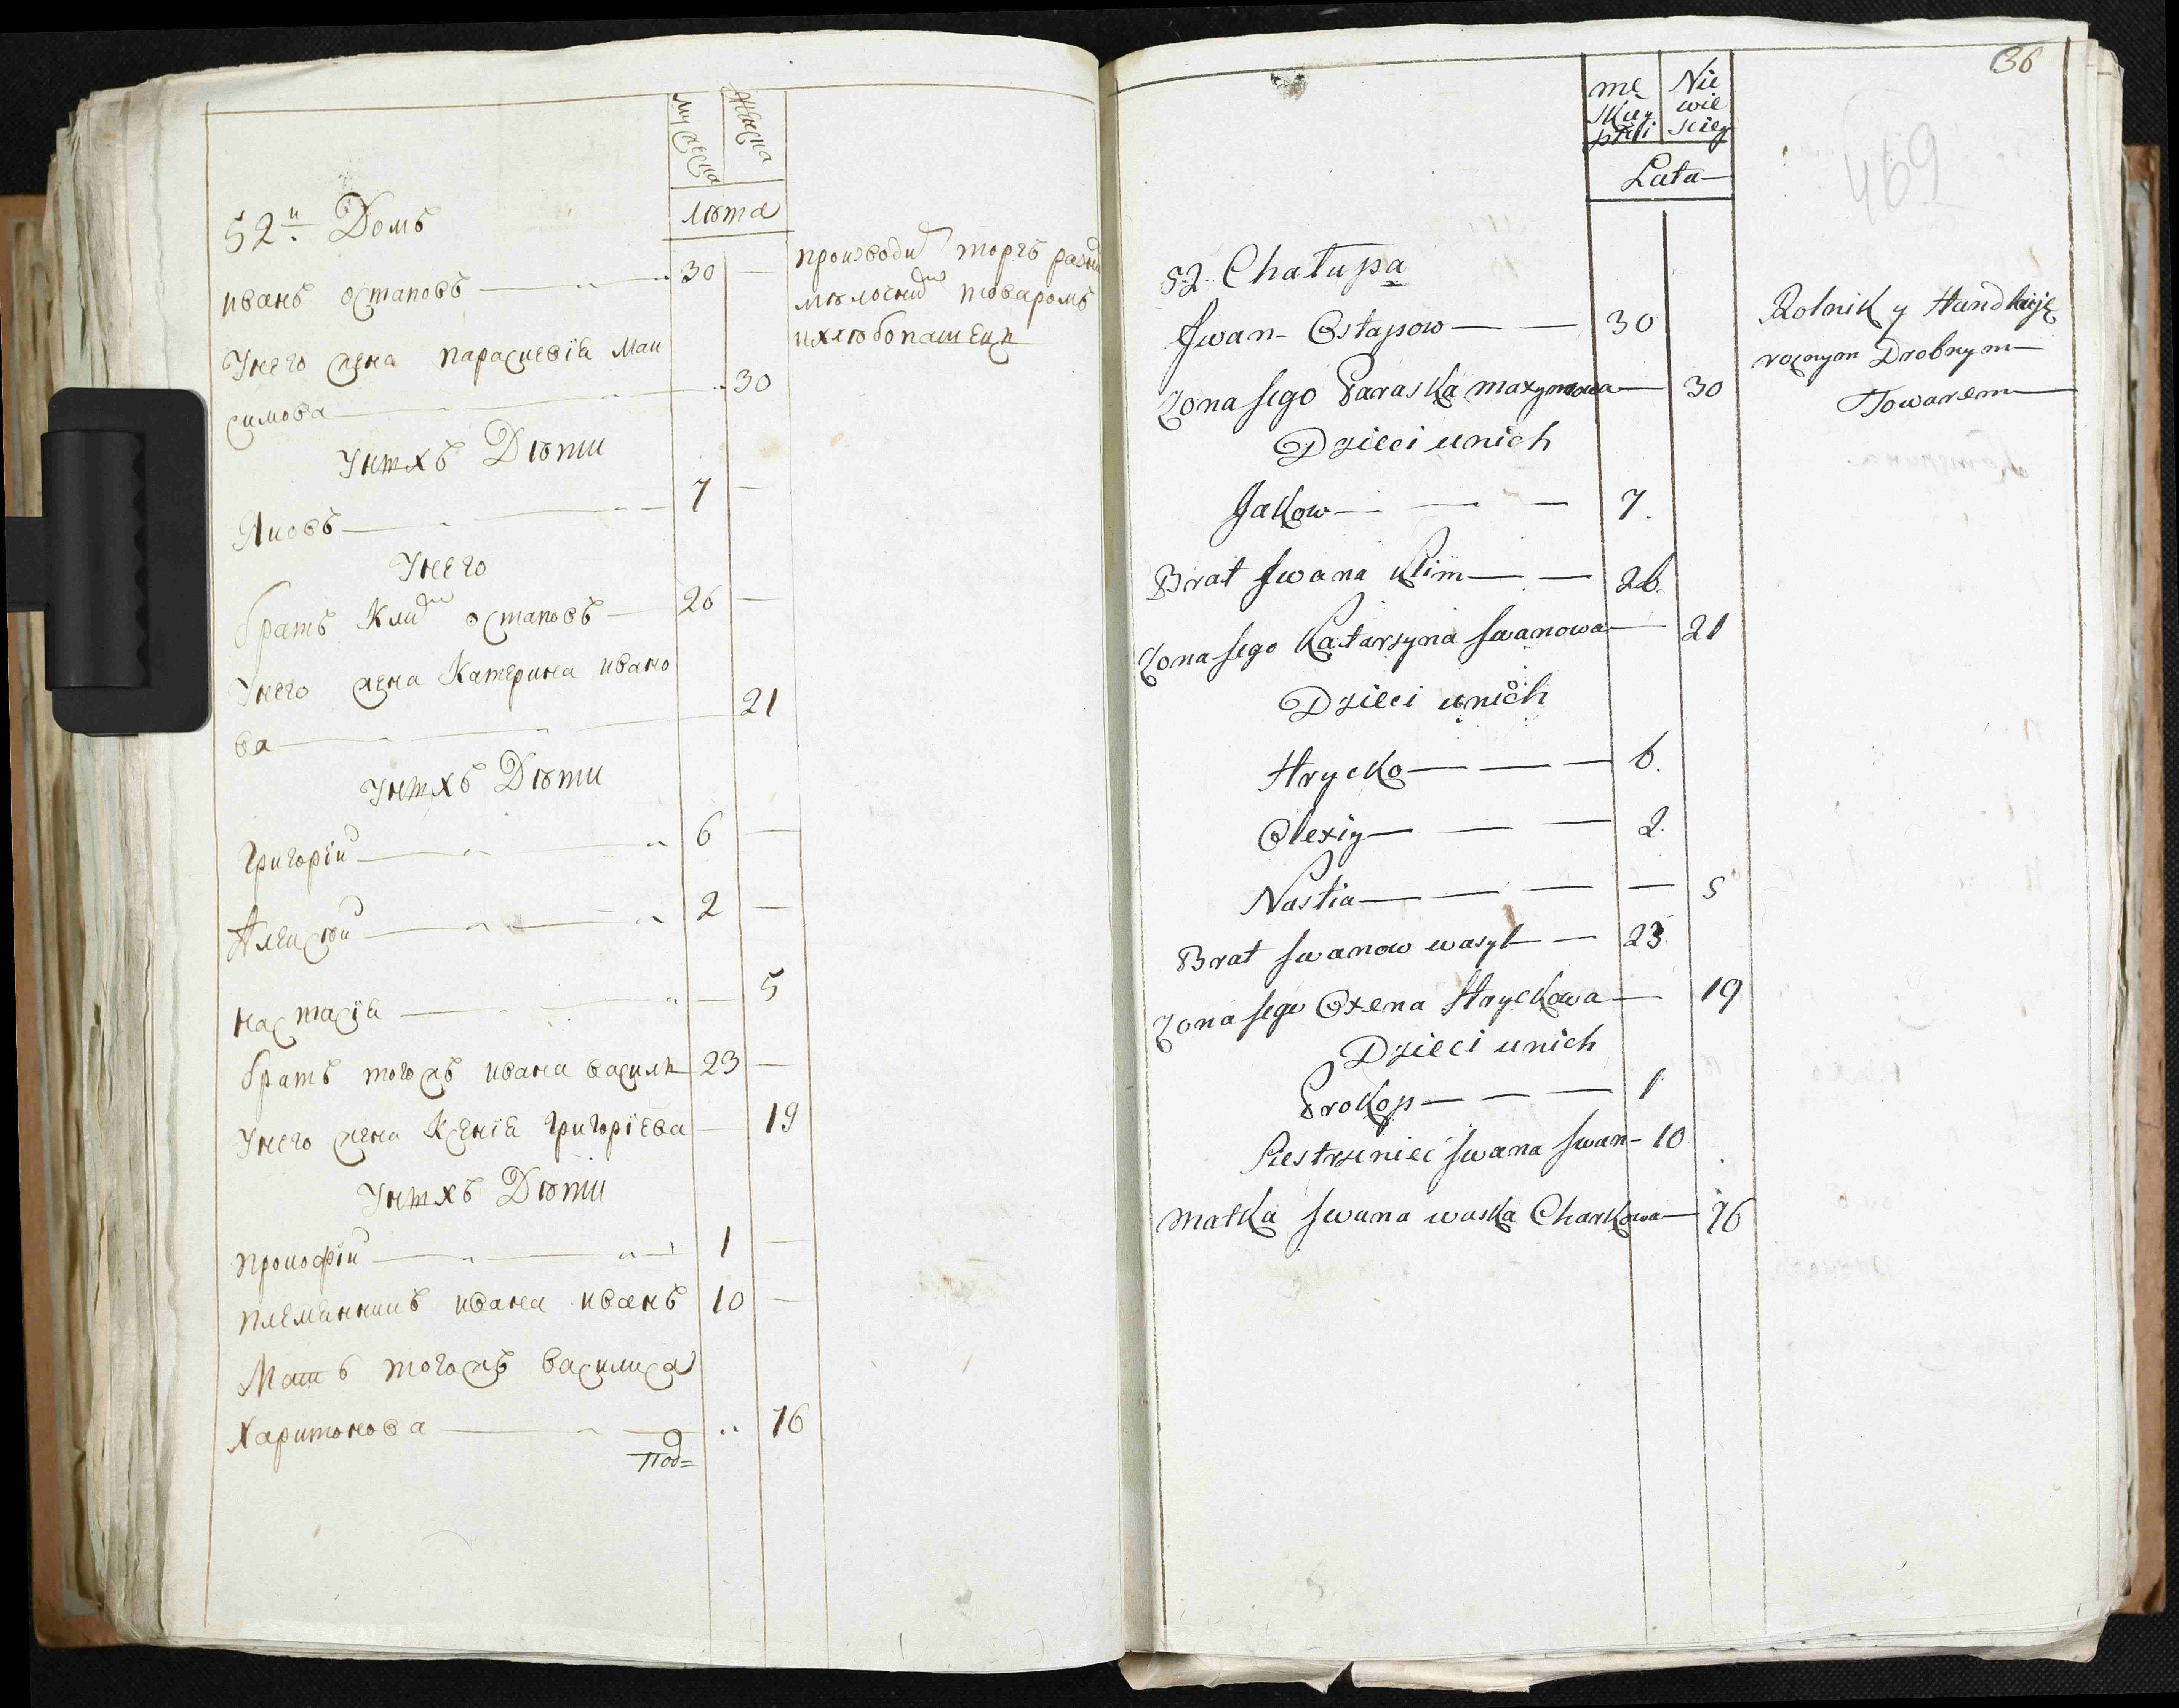 мужеска
женска
лѣта
52й Домъ
иванъ остаповъ 30 —
производи торгъ разни
мѣлочнимъ товаромъ
ихлѣбопашецъ
Унего жена параскевія Мак
симова 30
Унихъ Дѣти
Яковъ 7 —
Унего
братъ Климъ остаповъ 26 —
Унего жена Катерина ивано
ва 21
Унихъ Дѣти
Григорій 6 —
Алексѣй 2 —
настасія — 5
братъ тогожъ ивана василъ 23 —
Унего жена Ксенія Григоріева — 19
Унихъ Дѣти
прокофій 1 —
племянникъ ивана иванъ 10 —
Мать тогожъ василиса
харитонова 76
Под=
36
mę
skiey
płci
Nie
wie
sciey
469
Lata
52. Chałupa
Jwan Ostapow — — 30
Rolnik y Handluię
rocznym Drobnym
Towarem
Zona Jego Paraska maxymowa — 30
Dzieci unich
Jakow — — — 7.
Brat Jwana Klim — — 26.
Zona Jego Katarzyna Jwanowa — 21
Dzieci unich
Hrycko — — — 6.
Olexiy — — — 2.
Nastia — — — — 5
Brat Jwanow wasyl — — 23.
Zona Jego Oxena Hryckowa — 19
Dzieci unich
Prokop — — — 1
Siestrzeniec Jwana Jwan — 10
Matka Jwana waska Charkowa — 76